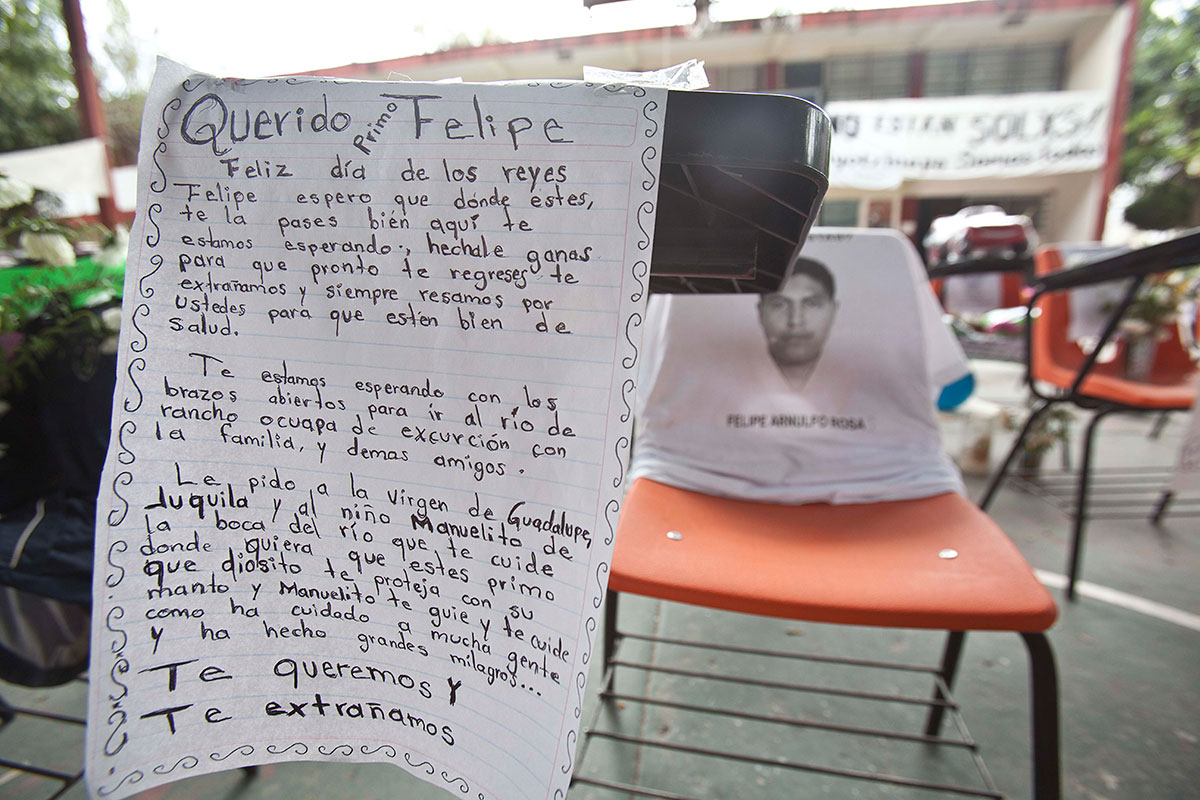 Querido Primo Felipe
Feliz día de los reyes
Felipe espero que dónde estes,
te la pases bién aquí te
estamos esperando, hechale ganas
para que pronto te regreses te
extrañamos y siempre resamos por
ustedes para que estén bien de
salud.
Te estamos esperando con los
brazos abiertos para ir al río de
rancho ocuapa de excurción con
la familia, y demas amigos.
Le pido a la virgen de Guadalupe,
Juquila y al niño Manuelito de
la boca del río que te cuide
donde quiera que estes primo
que diosito te proteja con su
manto y Manuelito te guie y te cuide
como ha cuidado a mucha gente
y ha hecho grandes milagros...
Te queremos y
Te extrañamos
FELIPE ARNULFO ROSA
NO ESTAN SOLXS!